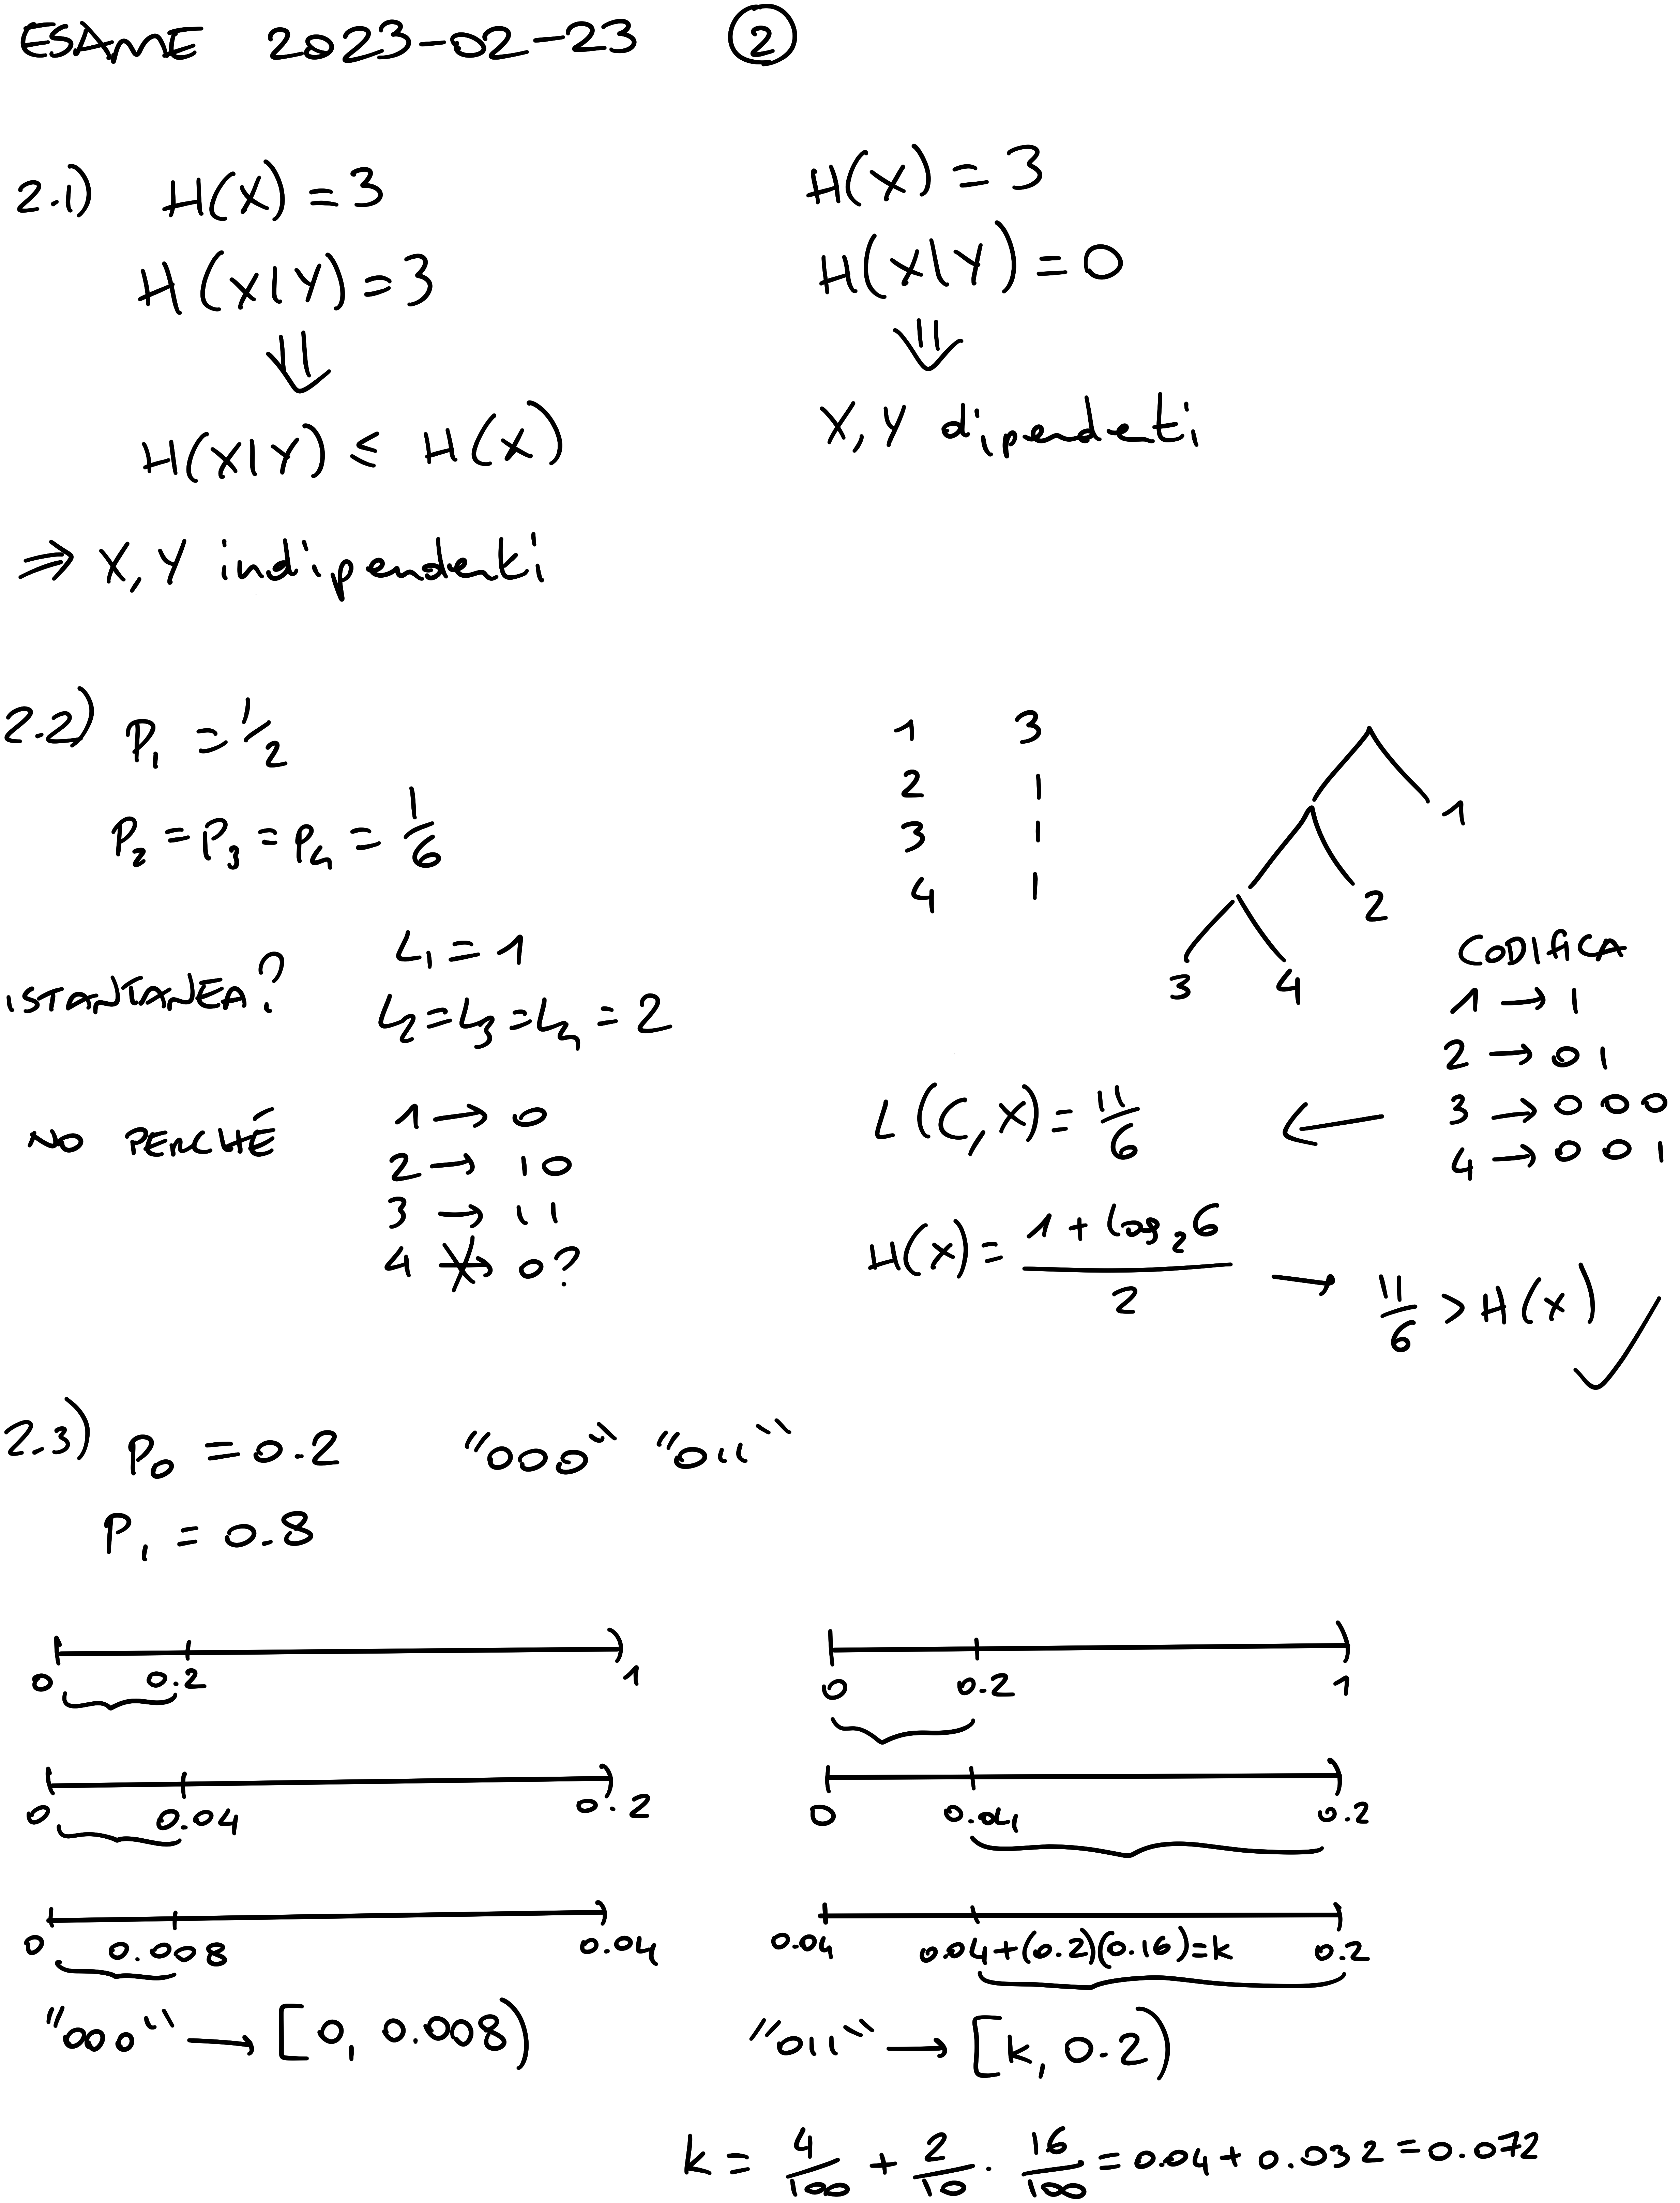 ESAME 2023-02-23 2
2.1) H(X) = 3
H(X|Y) = 3
⇓
H(X|Y) ≤ H(X)
⇒ X, Y indipendenti
H(X) = 3
H(X|Y) = 0
⇓
X, Y dipendenti
2.2) P₁ = 1/2
P₂ = P₃ = P₄ = 1/6
ISTANTANEA?
L₁ = 1
L₂ = L₃ = L₄ = 2
NO PERCHÉ
1 → 0
2 → 10
3 → 11
4 ↛ 0?
1 3
2 1
3 1
4 1
1
2
3 4
CODIFICA
1 → 1
2 → 01
3 → 000
4 → 001
L(C,X) = 11/6 ←
H(X) = (1 + log₂6)/2 → 11/6 > H(X) ✓
2.3) P₀ = 0.2 "000" "011"
P₁ = 0.8
0 0.2 1
0 0.04 0.2
0 0.008 0.04
"000" → [0, 0.008)
0 0.2 1
0 0.04 0.2
0.04 0.04+(0.2)(0.16)=k 0.2
"011" → [k, 0.2)
k = 4/100 + 2/10 · 16/100 = 0.04 + 0.032 = 0.072